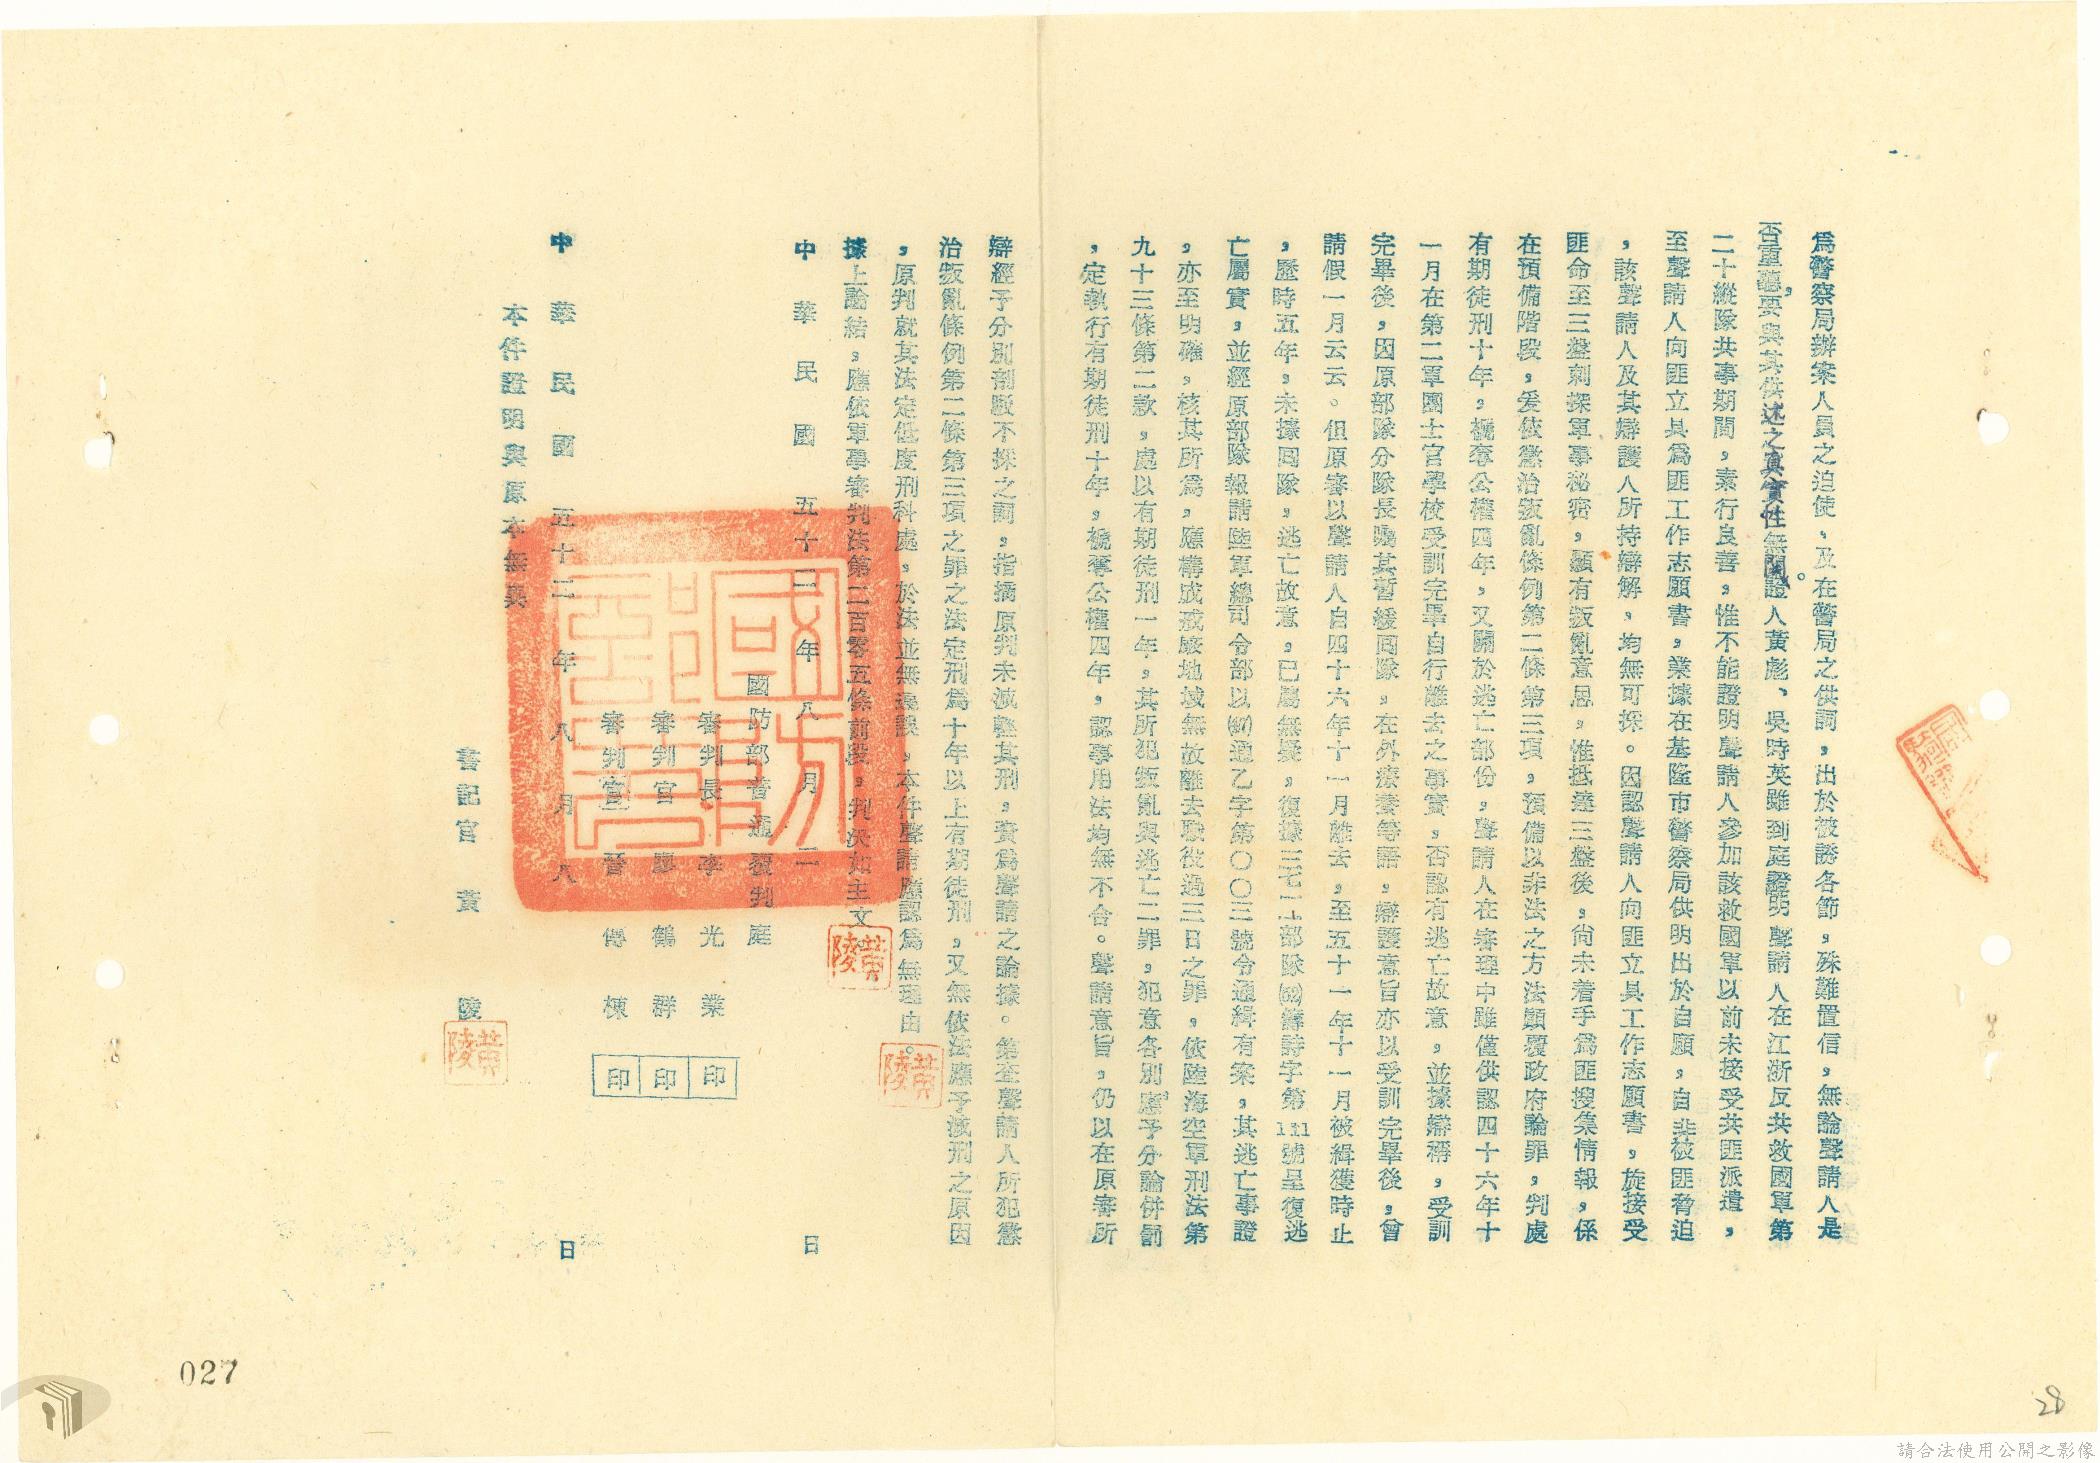 爲警察局辦案人員之迫使，及在警局之供詞，出於被誘各節，殊難置信，無論聲請人是
否重聽，要與其供述之真實性無關。證人黃彪、吳時英雖到庭證明聲請人在江浙反共救國軍第
二十縱隊共事期間，素行良善，惟不能證明聲請人參加該救國軍以前未接受共匪派遣，
至聲請人向匪立具爲匪工作志願書，業據在基隆市警察局供明出於自願，自非被匪脅迫
，該聲請人及其辯護人所持辯解，均無可採。因認聲請人向匪立具工作志願書，旋接受
匪命至三盤刺探軍事秘密，顯有叛亂意思，惟抵達三盤後，尚未着手爲匪搜集情報，係
在預備階段，爰依懲治叛亂條例第二條第三項，預備以非法之方法顛覆政府論罪，判處
有期徒刑十年，褫奪公權四年，又關於逃亡部份，聲請人在審理中雖僅供認四十六年十
一月在第二軍團士官學校受訓完畢自行離去之事實，否認有逃亡故意，並據辯稱，受訓
完畢後，因原部隊分隊長囑其暫緩回隊，在外療養等語，辯護意旨亦以受訓完畢後，曾
請假一月云云。但原審以聲請人自四十六年十一月離去，至五十一年十一月被緝獲時止
，歷時五年，未據回隊，逃亡故意，已屬無疑，復據三七一七部隊(52)濤詩字第111號呈復逃
亡屬實，並經原部隊報請陸軍總司令部以(47)通乙字第〇〇三號令通緝有案，其逃亡事證
，亦至明確，核其所爲，應構成戒嚴地域無故離去職役過三日之罪，依陸海空軍刑法第
九十三條第二款，處以有期徒刑一年，其所犯叛亂與逃亡二罪，犯意各別，應予分論併罰
，定執行有期徒刑十年，褫奪公權四年，認事用法均無不合。聲請意旨，仍以在原審所
辯經予分別剖駁不採之詞，指摘原判未減輕其刑，資爲聲請之論據。第查聲請人所犯懲
治叛亂條例第二條第三項之罪之法定刑爲十年以上有期徒刑，又無依法應予減刑之原因
，原判就其法定低度刑科處，於法並無違誤，本件聲請應認爲無理由。
據上論結，應依軍事審判法第二百零五條前段，判決如主文
中華民國五十二年八月二日
國防部普通覆判庭
審判長 李光業 印
審判官 廖鶴群 印
審判官 晉傳棟 印
中華民國五十二年八月八日
本件證明與原本無異
書記官 黃陵
國防部印
黃陵
黃陵
黃陵
027
28
請合法使用公開之影像